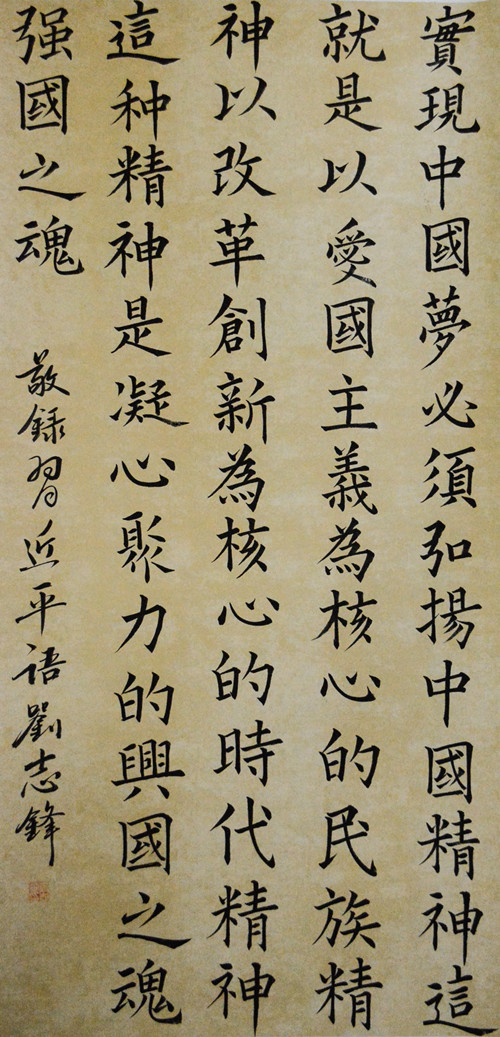 實現中國夢必須弘揚中國精神這
就是以愛國主義為核心的民族精
神以改革創新為核心的時代精神
這种精神是凝心聚力的興國之魂
强國之魂
敬録習近平語劉志鋒